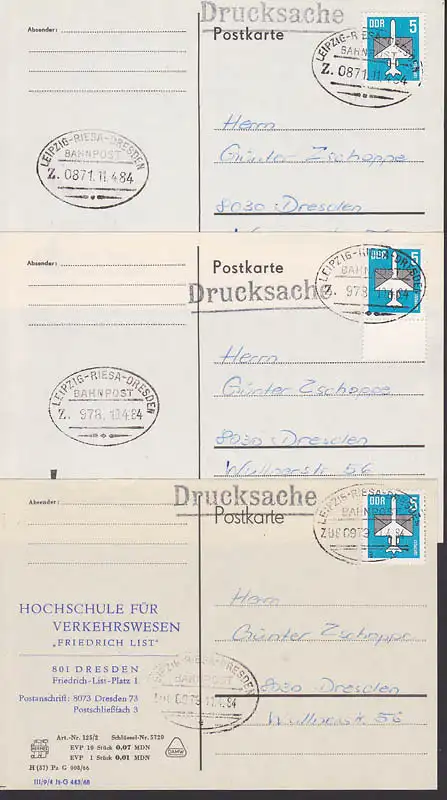 Drucksache
Absender:
Postkarte
DDR 5
LEIPZIG-RIESA-DRESDEN
BAHNPOST
Z. 0871.11.4.84
LEIPZIG-RIESA-DRESDEN
BAHNPOST
Z. 0871.11.4.84
Herrn
Günter Zschoppe
8030 Dresden
Absender:
Postkarte
DDR 5
Drucksache
LEIPZIG-RIESA-DRESDEN
BAHNPOST
Z. 978. 13.4.84
LEIPZIG-RIESA-DRESDEN
BAHNPOST
Z. 978. 13.4.84
Herrn
Günter Zschoppe
8030 Dresden
56
Drucksache
Absender:
Postkarte
DDR 5
LEIPZIG-RIESA-DRESDEN
BAHNPOST
HOCHSCHULE FÜR
VERKEHRSWESEN
„FRIEDRICH LIST"
801 DRESDEN
Friedrich-List-Platz 1
Postanschrift: 8073 Dresden 73
Postschließfach 3
LEIPZIG-RIESA-DRESDEN
BAHNPOST
Herrn
Günter Zschoppe
8030 Dresden
56
Art.-Nr. 125/2 Schlüssel-Nr. 5720
EVP 10 Stück 0,07 MDN
EVP 1 Stück 0,01 MDN
H (37) Pz G 003/66
III/9/4 Jt-G 443/68